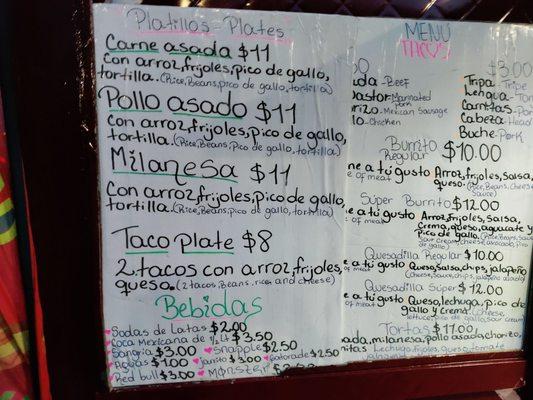 Platillos - Plates
Carne asada $11
con arroz, frijoles, pico de gallo,
tortilla. (Rice, Beans, pico de gallo, tortilla)
Pollo asado $11
con arroz, frijoles, pico de gallo,
tortilla. (Rice, Beans, pico de gallo, tortilla)
Milanesa $11
con arroz, frijoles, pico de gallo,
tortilla. (Rice, Beans, pico de gallo, tortilla)
Taco plate $8
2 tacos con arroz, frijoles,
queso. (2 tacos, Beans, rice and cheese)
Bebidas
Sodas de Latas $2.00
Coca Mexicana de 1/2 Lt $3.50
Sangria $3.00 Snapple $2.50
Aguas $1.00 Jarrito $3.00 Gatorade $2.50
Red bull $3.00 Monster
MENÚ
TACOS
$3.00
Beef
Marinated Pork
Mexican Sausage
Chicken
Tripa - Tripe
Lengua -
Carnitas -
Cabeza - Head
Buche - Pork
Burrito Regular $10.00
a tú gusto Arroz, frijoles, salsa,
of meat queso. (Rice, Beans, Cheese
Sauce)
Súper Burrito $12.00
a tú gusto Arroz, frijoles, salsa,
of meat Crema, queso, aguacate y
pico de gallo (Rice, Beans,
sour cream, cheese, avocado, pico
de gallo)
Quesadilla Regular $10.00
a tú gusto Queso, salsa, chips, jalapeño
of meat Cheese, Sauce, chips, jalapeño
Quesadilla Súper $12.00
a tú gusto Queso, lechuga, pico de
of meat gallo y Crema. Cheese,
lettuce, pico de gallo, sour cream
Tortas $11.00
milanesa, pollo asado, chorizo,
Lechuga, frijoles, queso, tomate